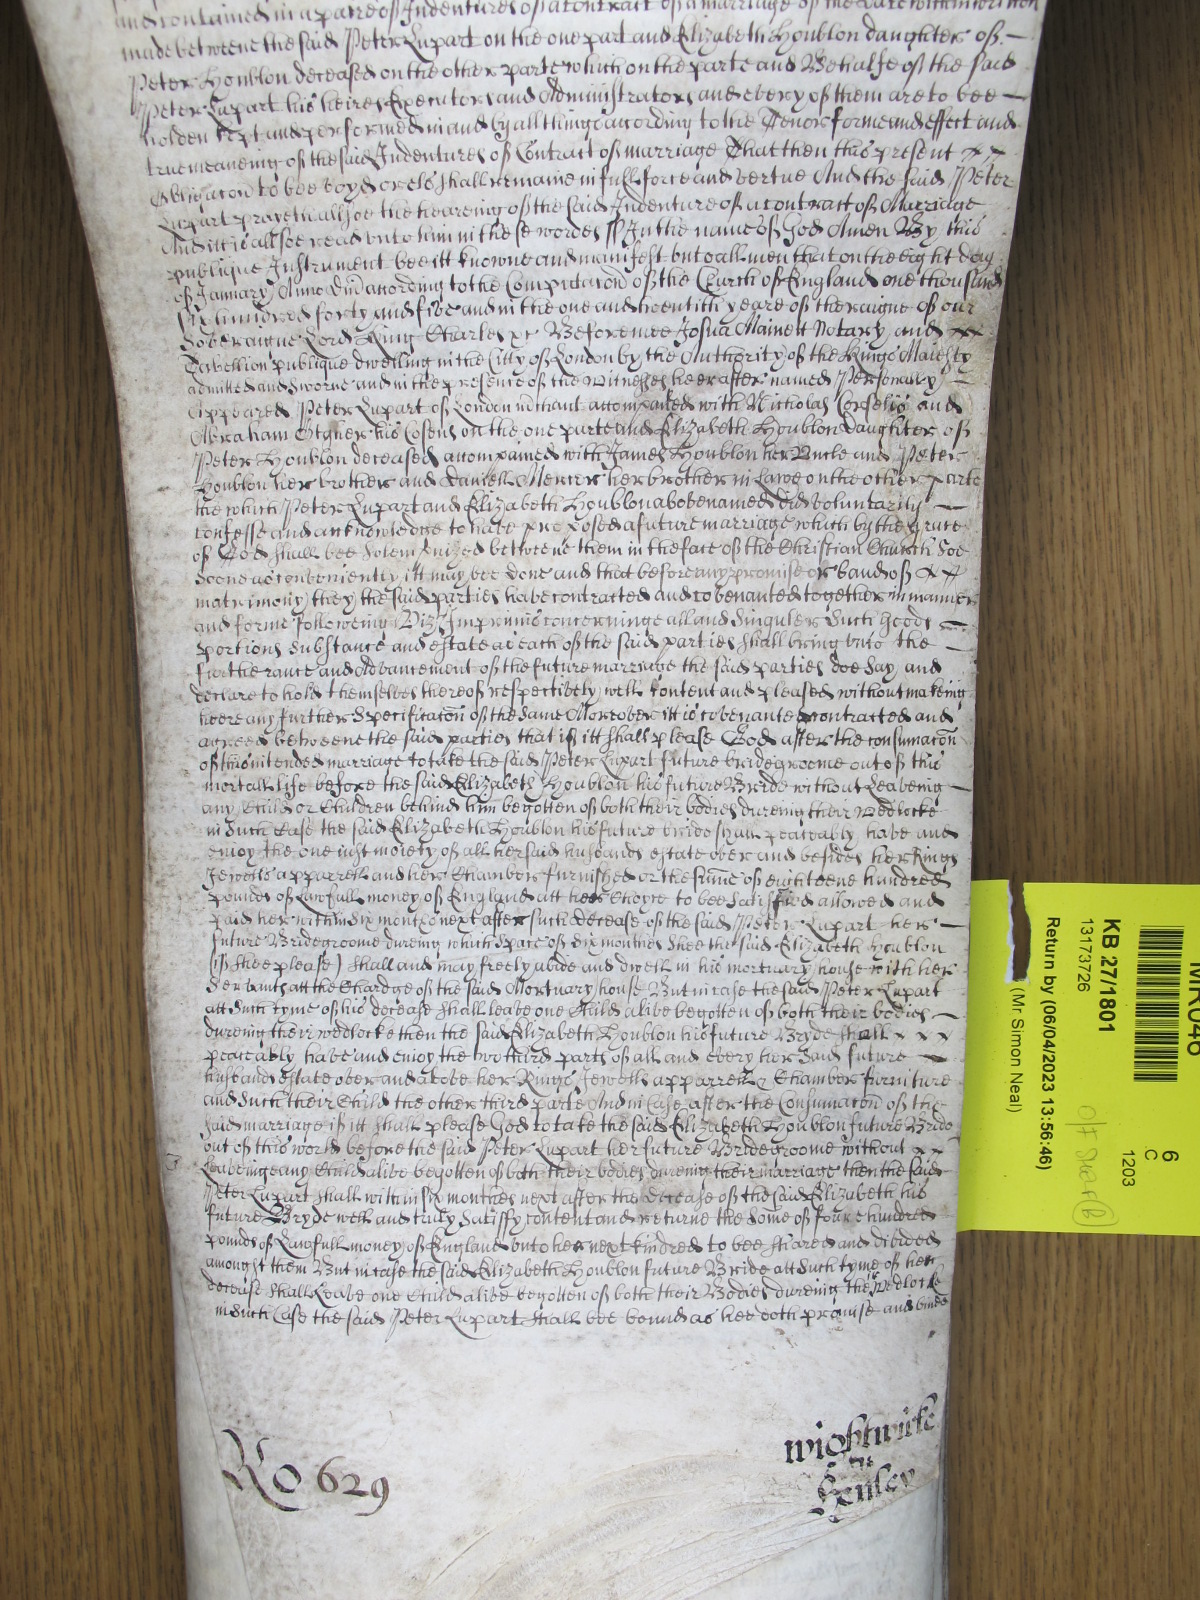 and contained in a paire of Indentures of a Contract of a marriage of the date within written
made betweene the said Peter Lupart on the one part and Elizabeth Houblon daughter of
Peter Houblon deceased on the other parte which on the parte and Behalfe of the said
Peter Lupart his heires Executors and Administrators and every of them are to bee
holden kept and performed in and by all things according to the Tenor forme and effect and
true meaneing of the said Indentures of Contract of marriage That then this present
Obligacon to bee voyd or els shall remaine in full force and vertue And the said Peter
Lupart prayeth alsoe the heareing of the said Indenture of a contract of Marriage
And it is allsoe read unto him in these wordes ss In the name of God Amen By this
publique Instrument bee itt knowne and manifest unto all men that on the eight day
of January Anno Dni according to the Computacon of the Church of England one thousand
six hundred forty and five and in the one and twentith yeare of the raigne of our
Soveraigne Lord King Charles &c Before mee Josua Mainett Notary and
Tabellion publique dwelling in the Citty of London by the Authority of the Kings Maiesty
admitted and sworne and in the presence of the Witnesses heerafter named Personally
Appeared Peter Lupart of London mchant accompanied with Nicholas Corselis and
Abraham Otgher his Cosens on the one parte and Elizabeth Houblon Daughter of
Peter Houblon deceased accompanied with James Houblon her Uncle and Peter
Houblon her brother and Daniell Mercer her brother in Lawe on the other parte
the which Peter Lupart and Elizabeth Houblon abovenamed did voluntarily
confesse and acknowledge to have pre posed a future marriage which by the grace
of God shall bee Solemnized betweene them in the face of the Christian Church Soe
Soone as conveniently itt may bee done and that before any promise or band of
matrimony they the said parties have contracted and covenanted together in manner
and forme following Vizt Imprimis concerninge all and Singuler Such goods
portions Substance and estate as each of the said parties shall bring unto the
furtherance and Advancement of the future marriage the said parties doe Say and
declare to hold themselves thereof respectively well content and pleased without makeing
heere any further Specificacon of the same Moreover itt is covenanted contracted and
agreed betweene the said parties that if itt shall please God after the consumacon
of this intended marriage to take the said Peter Lupart future bridegroome out of this
mortall life before the said Elizabeth Houblon his future Bride without Leaveing
any Child or Children behind him begotten of both their bodies dureing their wedlocke
in Such Case the said Elizabeth Houblon his future bride shall peaceably have and
enjoy the one just moiety of all her said husbands estate over and besides her Rings
Jewells apparrell and her Chamber furnished or the summe of eighteene hundred
pounds of Lawfull money of England att her Choyce to bee Satisfied allowed and
paid her within Six months next after such decease of the said Peter Lupart her
future Bridegroome dureing which Space of Six monthes Shee the said Elizabeth Houblon
(if shee please) shall and may freely abide and dwell in his mortuary house with her
Servants att the Chardge of the said Mortuary house But in case the said Peter Lupart
att Such tyme of his decease shall leave one Child alive begotten of both their bodies
dureing their wedlocke then the said Elizabeth Houblon his future Bryde shall
peaceably have and enjoy the two third parts of all and every her Said future
husbands estate over and above her Rings Jewells apparrell & Chamber furniture
and Such their Child the other third parte And in Case after the Consumacon of the
said marriage if itt shall please God to take the said Elizabeth Houblon future Bride
out of this world before the said Peter Lupart her future Bridegroome without
Leaveinge any Child alive begotten of both their bodies dureing their marriage then the said
Peter Lupart shall within six monthes next after the decease of the said Elizabeth his
future Bryde well and truly Satisfy content and returne the Some of foure hundred
pounds of Lawfull money of England unto her next kindred to bee shared and divided
amongst them But in case the said Elizabeth Houblon future Bride att Such tyme of her
decease shall Leave one Child alive begotten of both their Bodies dureing their wedlocke
in Such Case the said Peter Lupart shall bee bound as hee doth promise and binde
Ro 629
wightwicke
et
Henley
MR046
6
C
1203
KB 27/1801
13173726
Return by (06/04/2023 13:56:46)
(Mr Simon Neal)